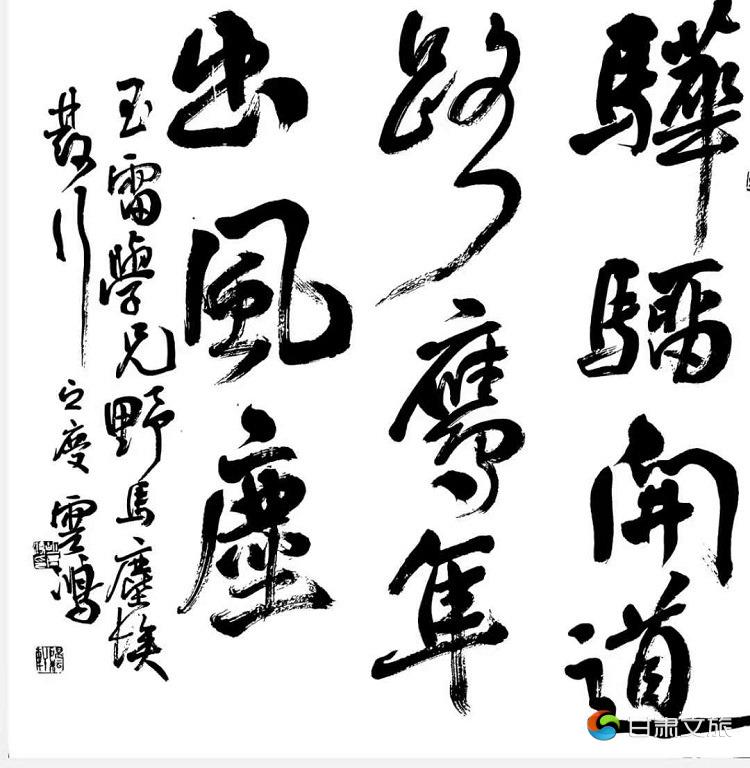 驊騮開道
路鷹隼
出風塵
玉雷學兄野馬塵埃
發行之慶 雲鴻
甘肃文旅